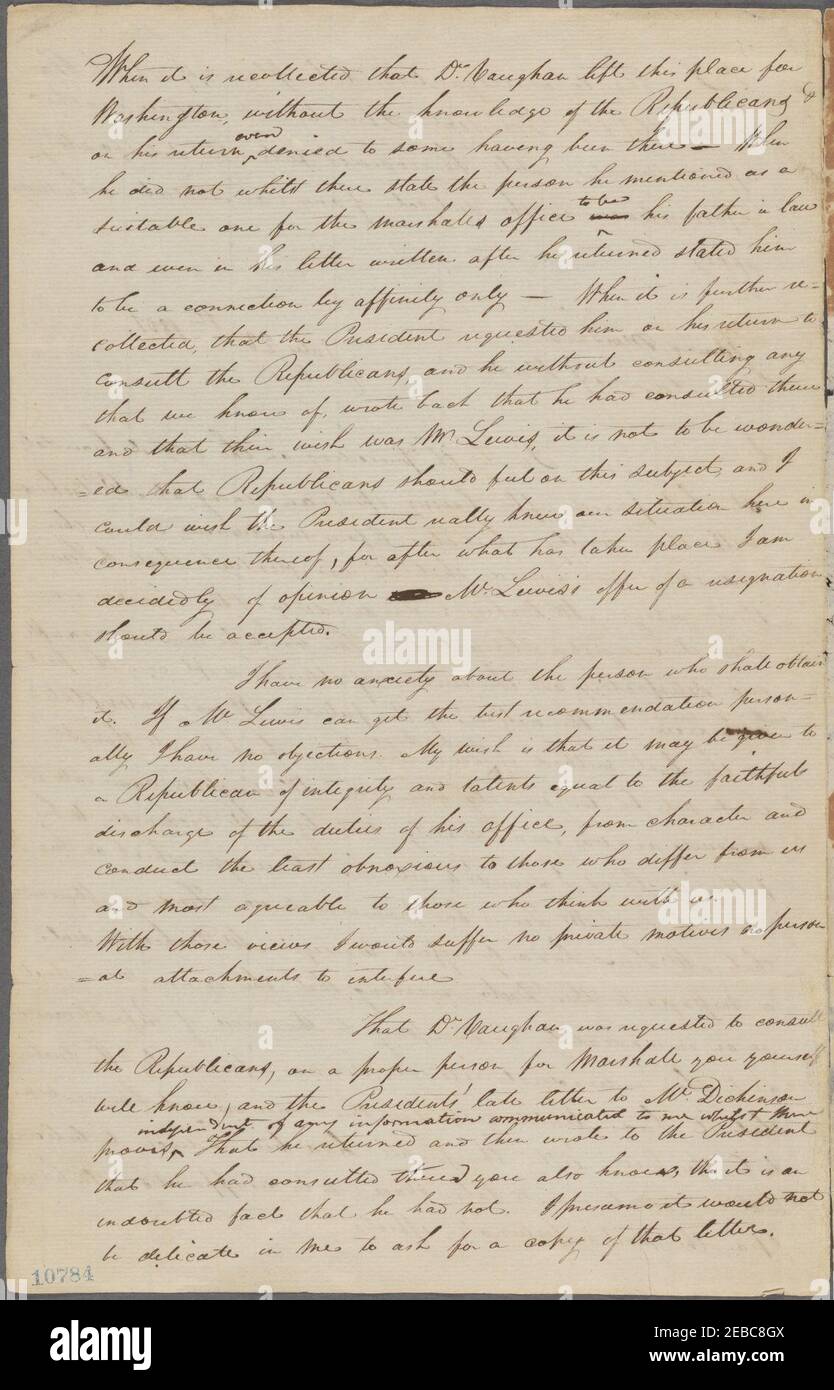 When it is recollected that Dr Vaughan left this place for
Washington, without the knowledge of the Republicans &
on his return even denied to some having been there — When
he did not whilst there state the person he mentioned as a
suitable one for the marshalls office to be his father in law
and even in his letter written after he returned stated him
to be a connection by affinity only — When it is further re=
collected, that the President requested him on his return to
consult the Republicans, and he without consulting any
that we know of, wrote back that he had consulted them
and that their wish was Mr Lewis, it is not to be wonder=
=ed that Republicans should feel on this subject, and I
could wish the President really knew our situation here in
consequence thereof, for after what has taken place I am
decidedly of opinion Mr Lewis's offer of a resignation
should be accepted.
I have no anxiety about the person who shall obtain
it. If Mr Lewis can get the best recommendation person=
ally I have no objections. My wish is that it may be given to
a Republican of integrity and talents equal to the faithful
discharge of the duties of his office, from character and
conduct the least obnoxious to those who differ from us
and most agreeable to those who think with us.
With those views I would suffer no private motives no person
=al attachments to interfere
That Dr Vaughan was requested to consult
the Republicans, on a proper person for Marshall you yourself
well know, and the Presidents' late letter to Mr Dickinson
independent of any information communicated to me whilst there
proves, That he returned and then wrote to the President
that he had consulted them you also know, tho it is an
undoubted fact that he had not. I presume it would not
be delicate in me to ask for a copy of that letter.
10784
alamy
alamy
alamy
Image ID: 2EBC8GX
www.alamy.com